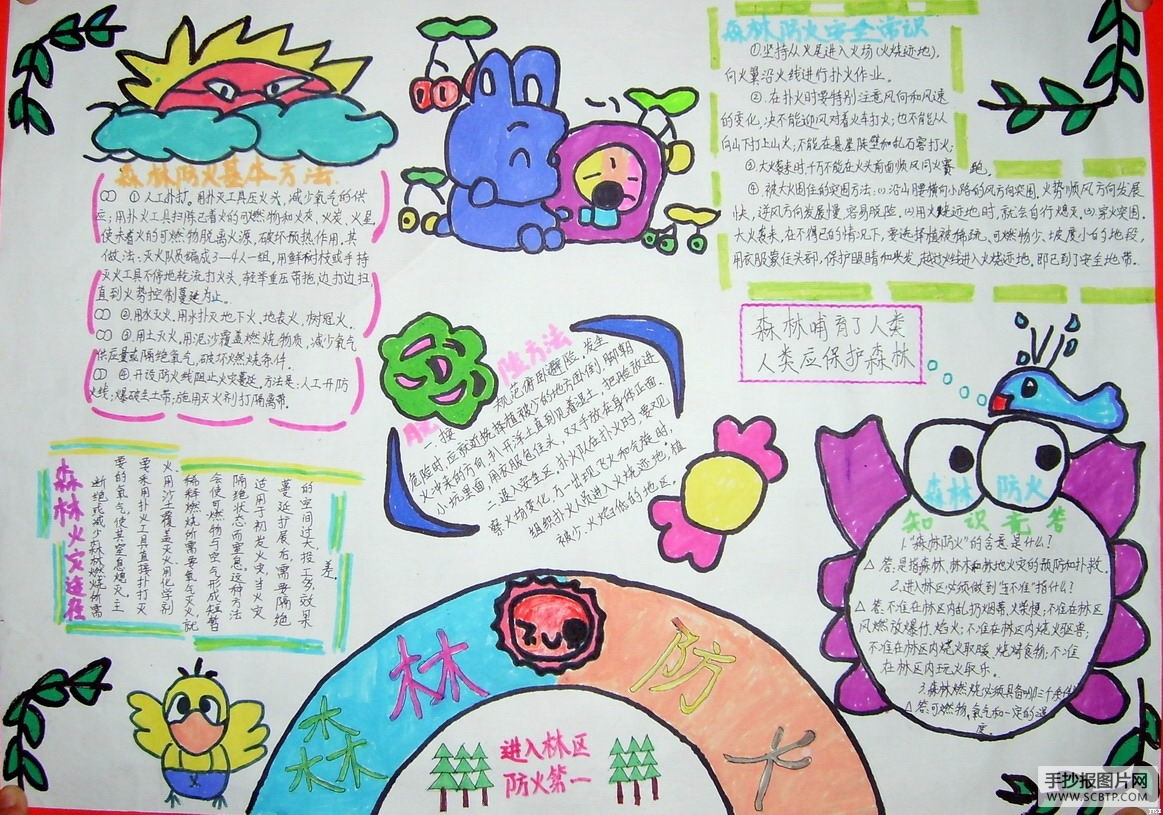 森林防火基本方法
①人工扑打。用扑灭工具压火头,减少氧气的供
应;用扑火工具扫除已着火的可燃物和火灰、火炭、火星,
使未着火的可燃物脱离火源,破坏预热作用。其
做法:灭火队员编成3-4人一组,用鲜树枝或手持
灭火工具不停地轮流打火头,轻举重压带拖,边打边扫,
直到火势控制蔓延为止。
②用水灭火,用水扑灭地下火、地表火,树冠火。
③用土灭火,用泥沙覆盖燃烧物质,减少氧气
供应量或隔绝氧气,破坏燃烧条件。
④开设防火线阻止火灾蔓延。方法是:人工开防
火线;爆破生土带;施用灭火剂打隔离带。
森林防火安全常识
①坚持从火尾进入火场(火烧迹地),
向火翼沿火线进行扑火作业。
②在扑火时要特别注意风向和风速
的变化,决不能迎风对着火车打火;也不能从
向山下打上山火;不能在悬崖陡壁和乱石窖打火;
③大火袭来时千万不能在火头前面顺风同火赛跑。
④被大火围住的突围方法:(1)沿山腰横向小路的风方向突围。火势顺风方向发展
快,逆风方向发展慢,容易脱险。(2)用火烧迹地时,就会自行熄灭。(3)穿火突围。
大火袭来,在不得已的情况下,要选择植被稀疏、可燃物少、坡度小的地段,
用衣服蒙住头部,保护眼睛和头发,越过火线进入火烧迹地。即已到了安全地带。
险方法
一按规范俯卧避险。发生
危险时应就近选择植被少的地方卧倒,脚朝
火冲来的方向,扒开浮土直到见着湿土,把脸放进
小坑里面,用衣服包住头,双手放在身体正面。
二退入安全区,扑火队在扑火时,要观
察火场变化,万一出现飞火和气旋时,
组织扑火人员进入火烧迹地,植
被少、火焰低的地区。
森林哺育了人类
人类应保护森林
森林火灾途径
断绝或减少森林燃烧所需
要的氧气,使其窒息熄灭。主
要采用扑火工具直接扑打灭
火、用沙土覆盖灭火、用化学剂
稀释燃烧所需要氧气灭火,就
会使可燃物与空气形成短暂
隔绝状态而窒息。这种方法
适用于初发火灾,当火灾
蔓延扩展后,需要隔绝
的空间过大,投工多,效果
差。
森林 防火
知识竞答
1."森林防火"的含意是什么?
△答:是指森林、林木和林地火灾的预防和扑救。
2.进入林区必须做到"五不准"指什么?
△答:不准在林区内乱扔烟蒂,火柴梗;不准在林区
风燃放爆竹、焰火;不准在林区内烧火驱兽;
不准在林区内烧火取暖、烧烤食物;不准
在林区内玩火取乐。
3.森林燃烧必须具备哪三个条件?
△答:可燃物,氧气和一定的温
度。
森林防火
进入林区
防火第一
手抄报图片网
WWW.SCBTP.COM